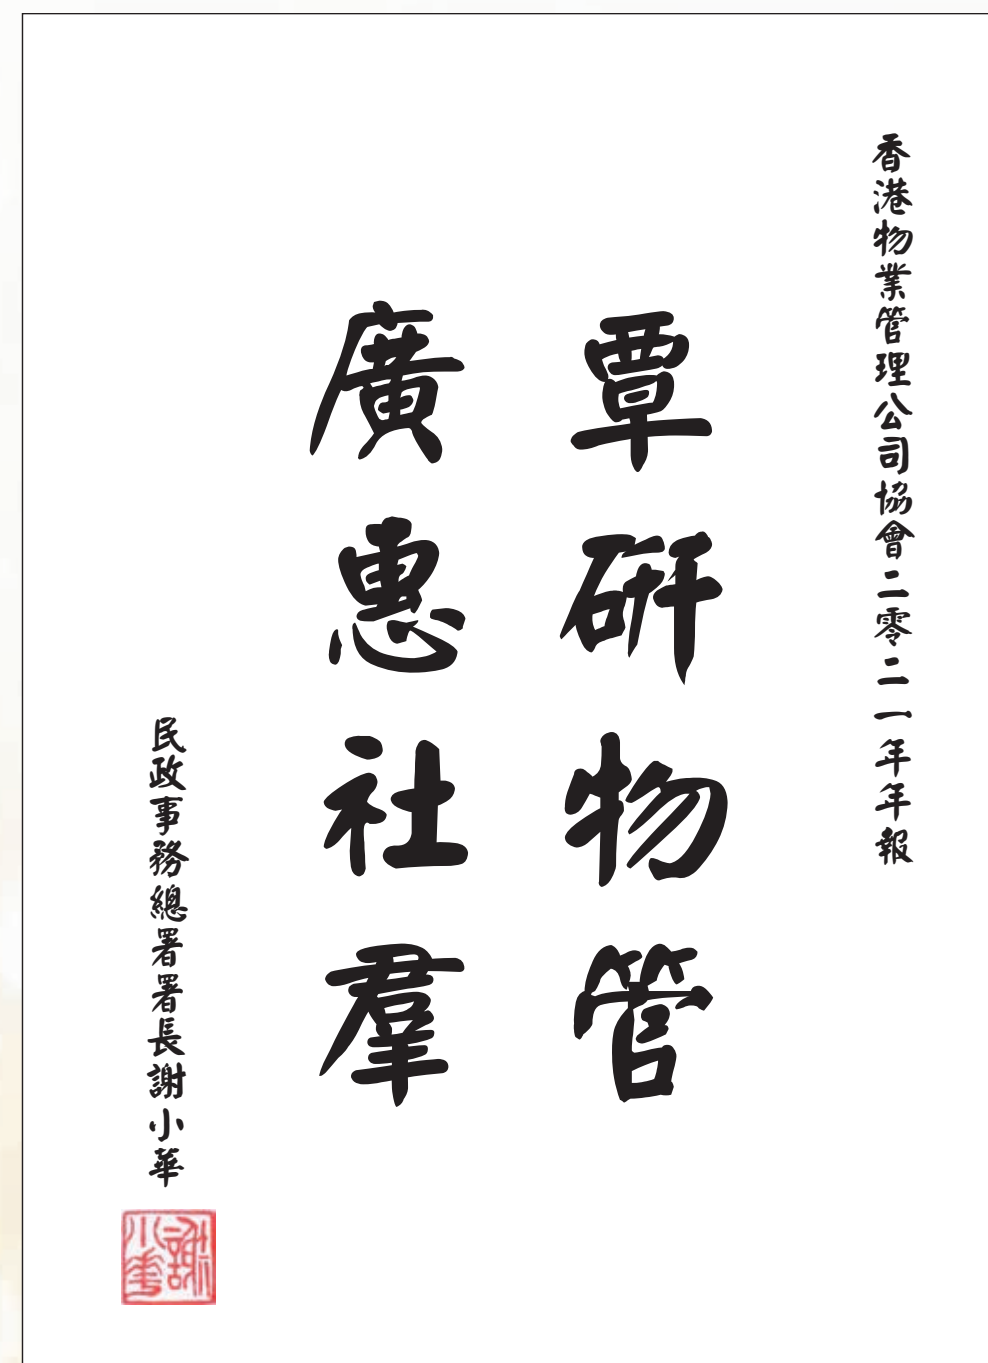 香港物業管理公司協會二零二一年年報
覃研物管
廣惠社羣
民政事務總署署長謝小華
謝小華